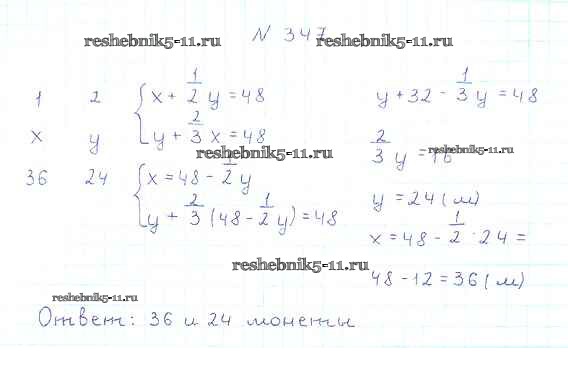 N 347
reshebnik5-11.ru
reshebnik5-11.ru
1 2 { x + 1/2 y = 48
x y y + 2/3 x = 48
reshebnik5-11.ru
36 24 { x = 48 - 1/2 y
y + 2/3 (48 - 1/2 y) = 48
y + 32 - 1/3 y = 48
2/3 y = 16
reshebnik5-11.ru
y = 24 (м)
x = 48 - 1/2 · 24 =
reshebnik5-11.ru
48 - 12 = 36 (м)
reshebnik5-11.ru
Ответ: 36 и 24 монеты